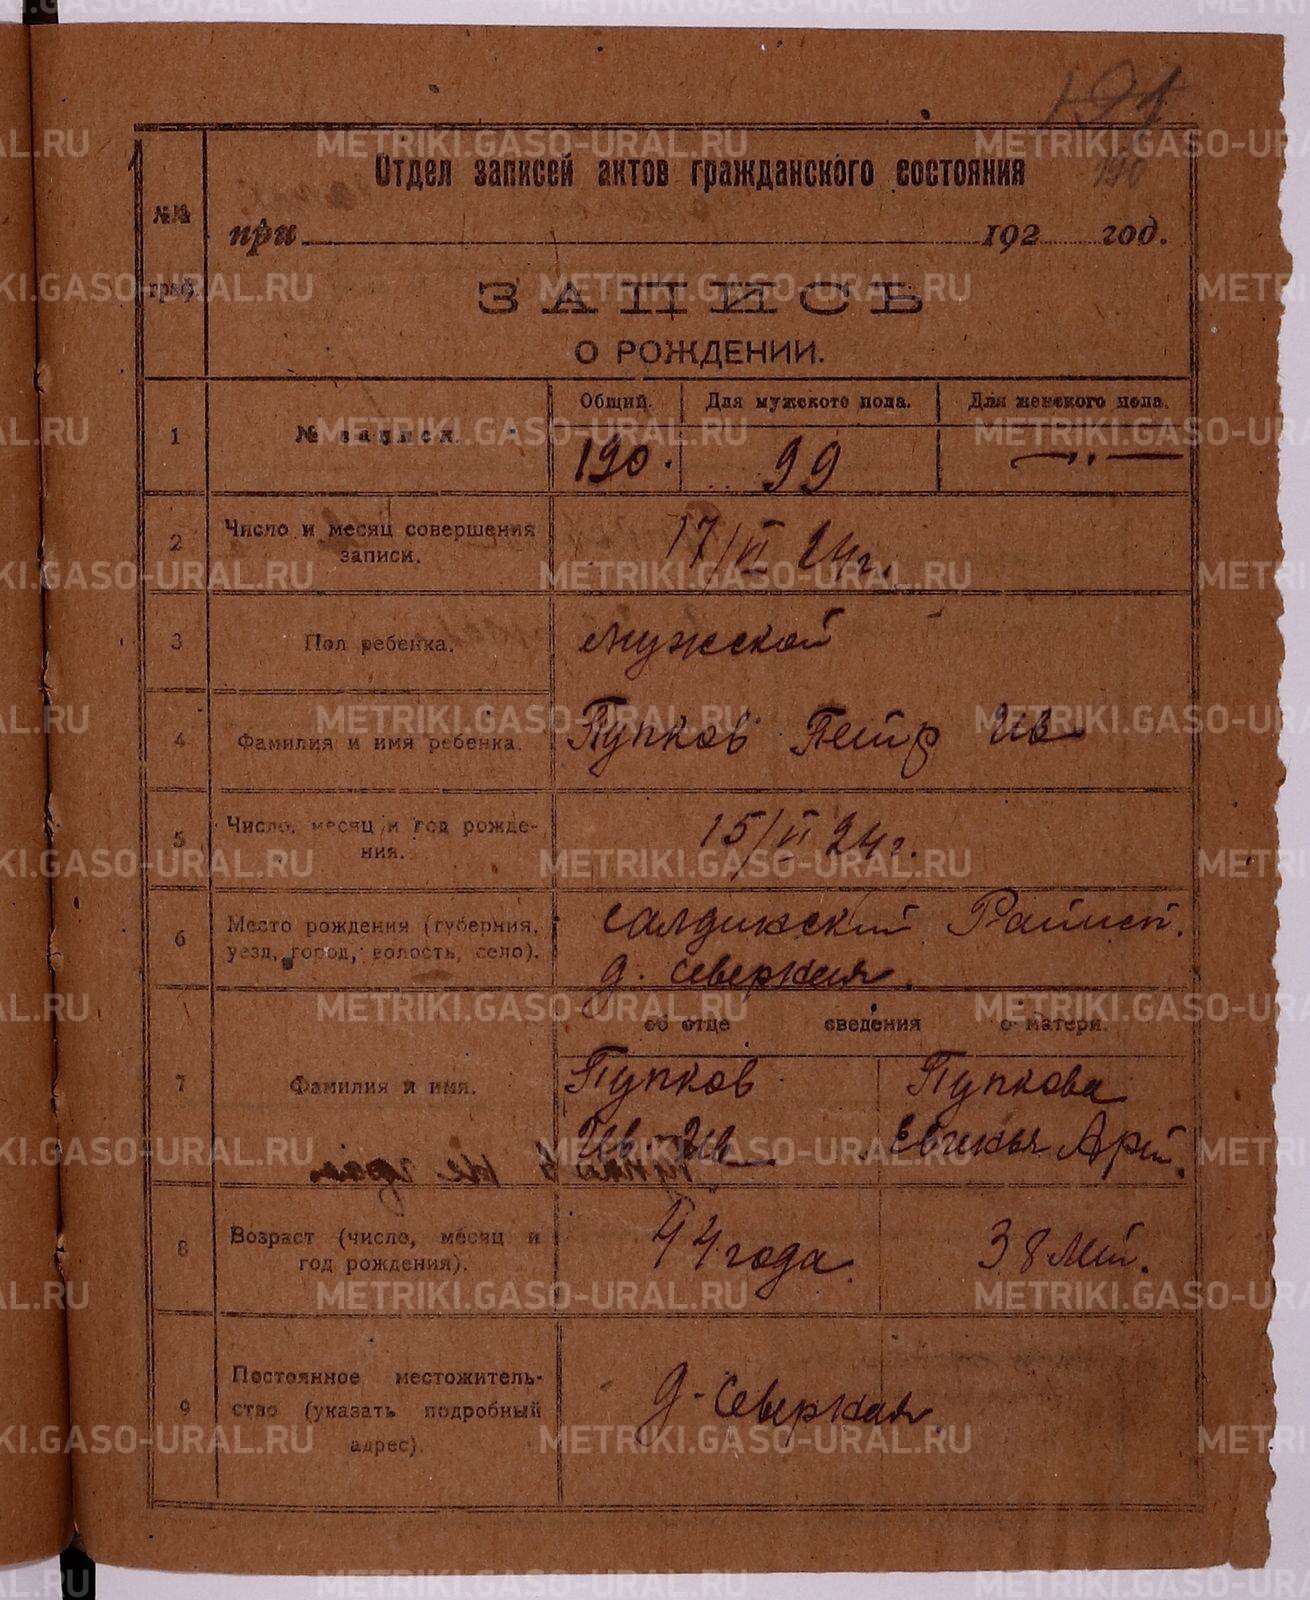 190
Отдел записей актов гражданского состояния
№№ граф.
при 192 год.
ЗАПИСЬ
О РОЖДЕНИИ.
1 № записи. Общий. Для мужского пола. Для женского пола.
190. 99 — „ —
2 Число и месяц совершения записи. 17/VI 24 г.
3 Пол ребенка. мужской
4 Фамилия и имя ребенка. Пупков Петр Ив
5 Число, месяц и год рождения. 15/VI 24 г.
6 Место рождения (губерния, уезд, город, волость, село). Салдинский
д. Северная.
об отце сведения о матери.
7 Фамилия и имя. Пупков Пупкова
Ив. Ив Евгенья
8 Возраст (число, месяц и год рождения). 44 года. 38 лет.
9 Постоянное местожительство (указать подробный адрес). д. Северная.
METRIKI.GASO-URAL.RU